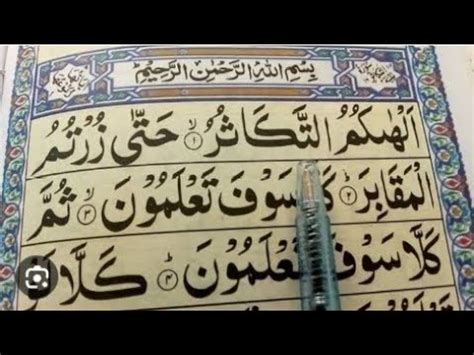 بِسْمِ اللهِ الرَّحْمٰنِ الرَّحِيْمِ
اَلْهٰىكُمُ التَّكَاثُرُ ۙ۱ حَتّٰى زُرْتُمُ
الْمَقَابِرَ ؕ۲ كَلَّا سَوْفَ تَعْلَمُوْنَ ۙ۳ ثُمَّ
كَلَّا سَوْفَ تَعْلَمُوْنَ ؕ۴ كَلَّا لَوْ